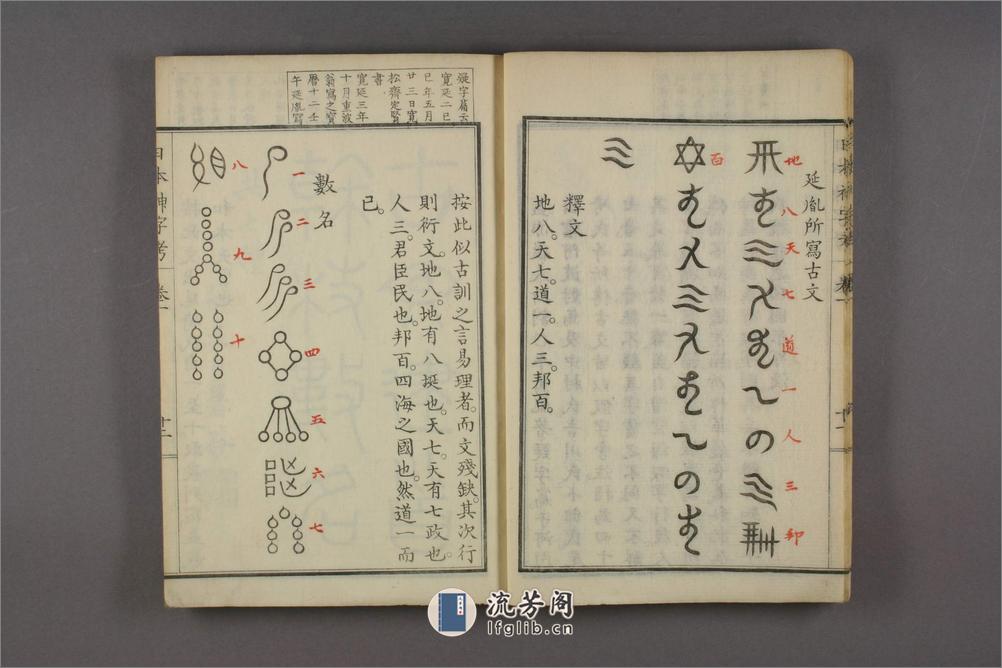 延胤所寫古文
地
八
天
七
道
一
人
三
邦
百
釋文
地八。天七。道一。人三。邦百。
疑字篇云
寛延二己
巳年五月
廿三日寛
松齋定賢
書
寛延三年
十月重波
翁寫之寳
暦十二壬
午延胤寫
按此似古訓之言易理者。而文殘缺。其次行
則衍文。地八。地有八埏也。天七。天有七政也。
人三。君臣民也。邦百。四海之國也。然道一而
已。
數名
一
二
三
四
五
六
七
八
九
十
日本神字考
卷一
十二
流芳阁
lfglib.cn